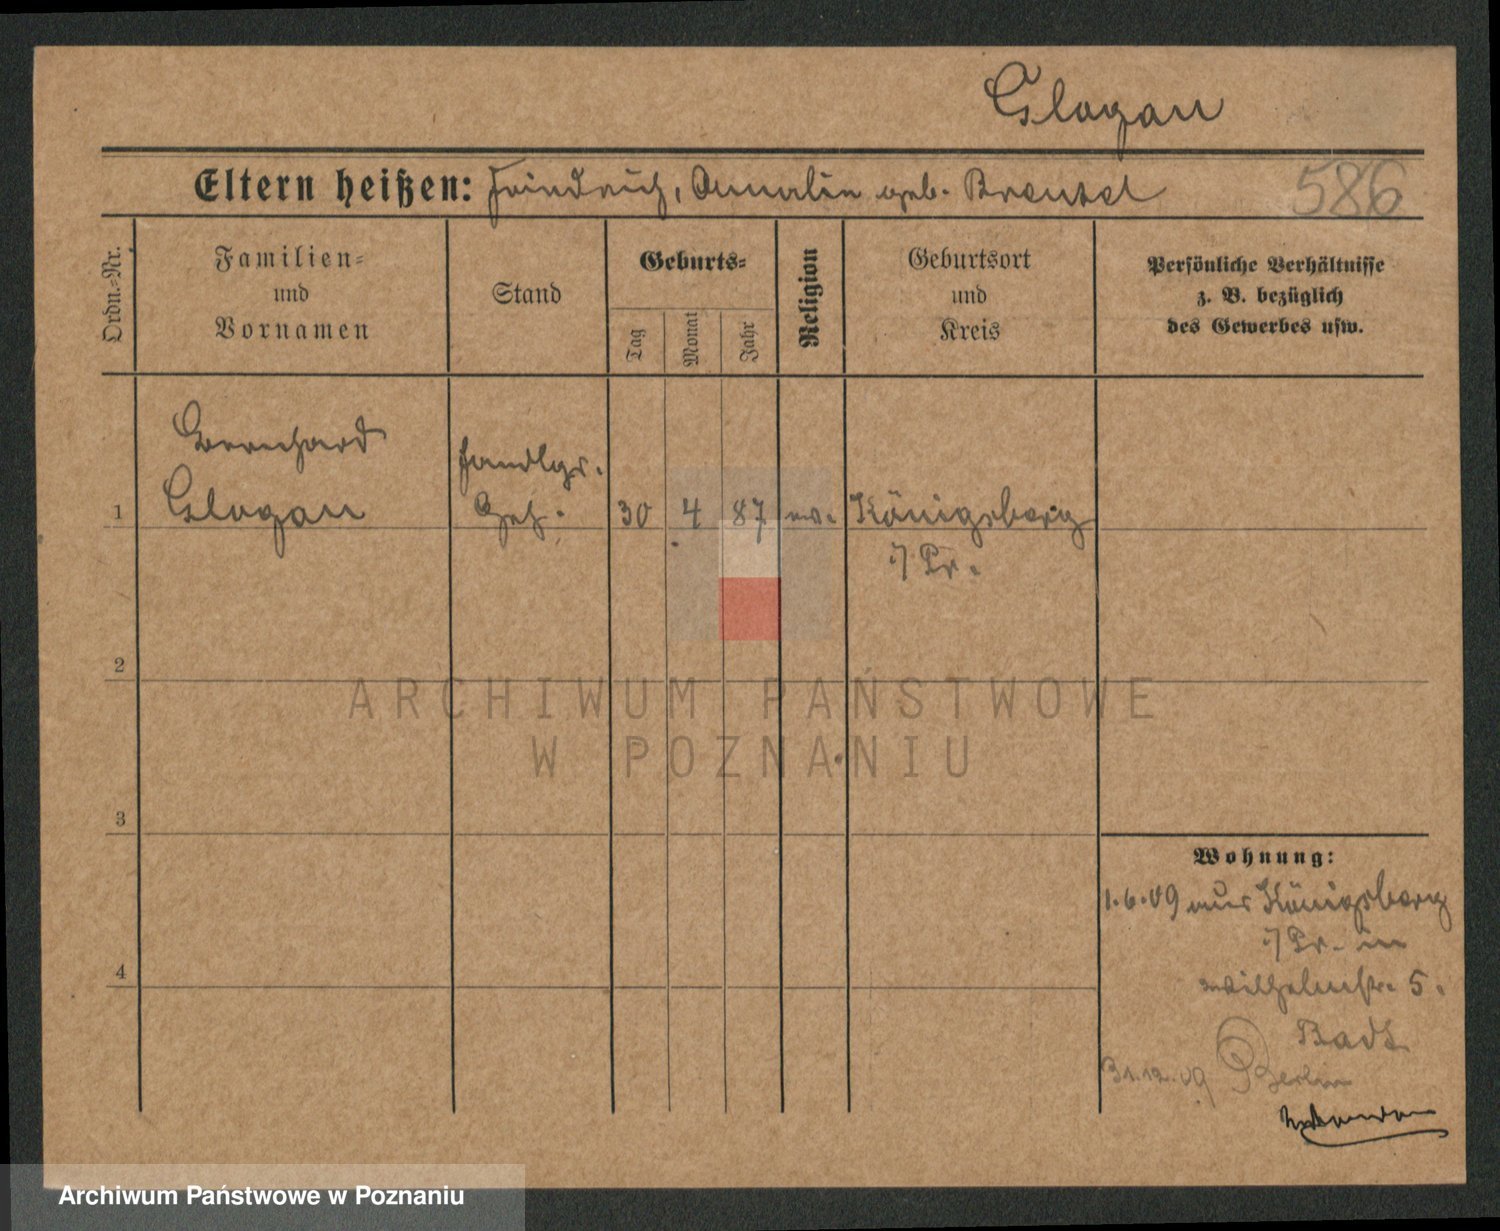 Glogau
Eltern heißen: Friedrich, Amalie geb.
586
Ordn.-Nr.
Familien-
und
Vornamen
Stand
Geburts-
Tag
Monat
Jahr
Religion
Geburtsort
und
Kreis
Persönliche Verhältnisse
z. B. bezüglich
des Gewerbes usw.
Bernhard
Handlgs.
1 Glogau Geh. 30 4 87 Königsberg
i/Pr.
2
ARCHIWUM PAŃSTWOWE
W POZNANIU
3
Wohnung:
1.6.09 aus Königsberg
i/Pr. in
Wilhelmstr. 5.
Badt
31.12.09 Berlin
4
Archiwum Państwowe w Poznaniu